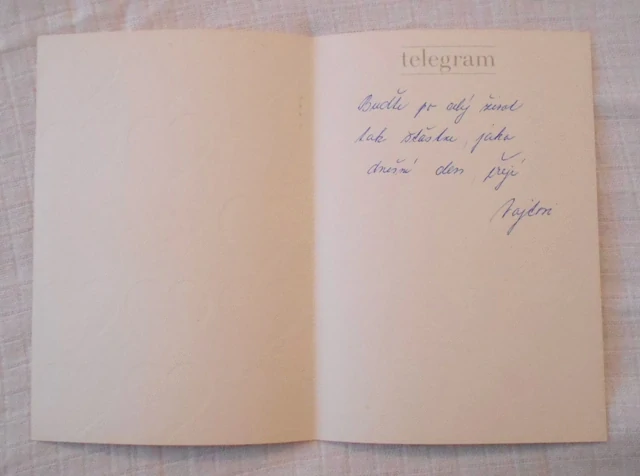 telegram
Buďte po celý život
tak šťastni, jako
dnešní den přejí